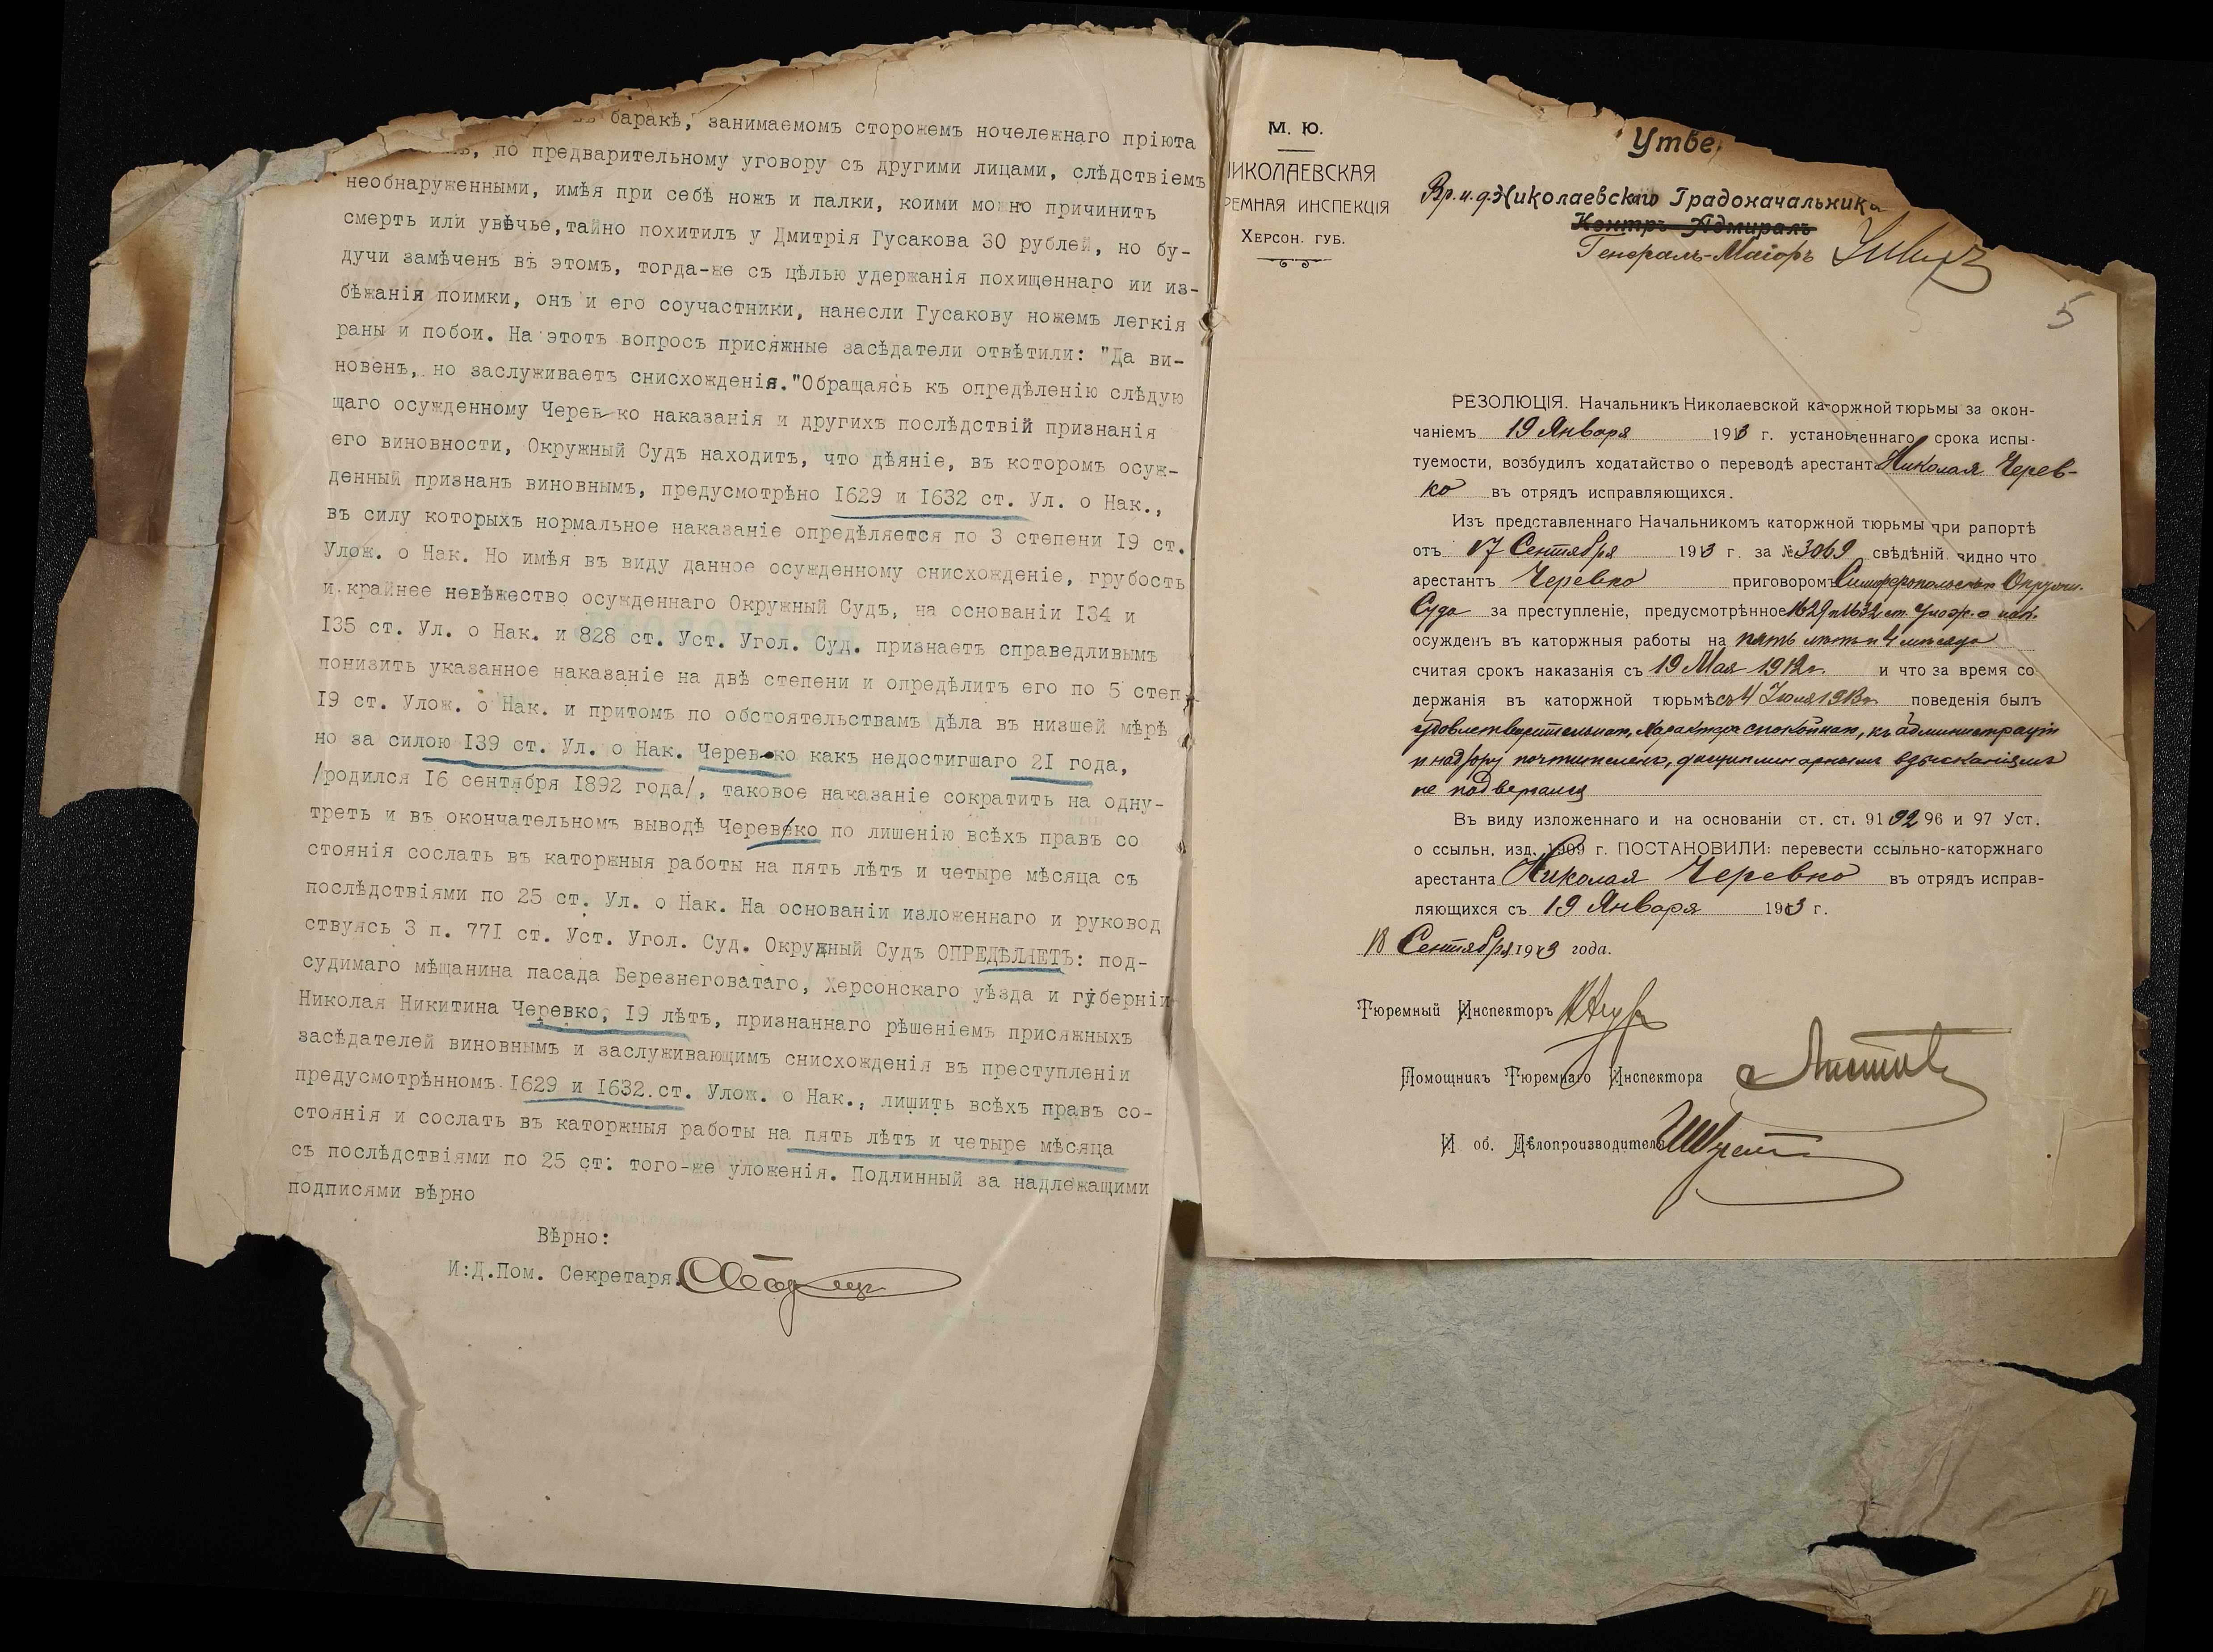 баракѣ, занимаемомъ сторожемъ ночележнаго пріюта
по предварительному уговору съ другими лицами, слѣдствіемъ
необнаруженными, имѣя при себѣ ножъ и палки, коими можно причинить
смерть или увѣчье,тайно похитилъ у Дмитрія Гусакова 30 рублей, но бу-
дучи замѣченъ въ этомъ, тогда-же съ цѣлью удержанія похищеннаго ии из-
бѣжанія поимки, онъ и его соучастники, нанесли Гусакову ножемъ легкія
раны и побои. На этотъ вопросъ присяжные засѣдатели отвѣтили: "Да ви-
новенъ, но заслуживаетъ снисхожденія."Обращаясь къ опредѣленію слѣдую
щаго осужденному Черев-ко наказанія и другихъ послѣдствій признанія
его виновности, Окружный Судъ находитъ, что дѣяніе, въ которомъ осуж-
денный признанъ виновнымъ, предусмотрѣно 1629 и 1632 ст. Ул. о Нак.,
въ силу которыхъ нормальное наказаніе опредѣляется по 3 степени 19 ст.
Улож. о Нак. Но имѣя въ виду данное осужденному снисхожденіе, грубость
и крайнее невѣжество осужденнаго Окружный Судъ, на основаніи 134 и
135 ст. Ул. о Нак. и 828 ст. Уст. Угол. Суд. признаетъ справедливымъ
понизить указанное наказаніе на двѣ степени и опредѣлить его по 5 степ.
19 ст. Улож. о Нак. и притомъ по обстоятельствамъ дѣла въ низшей мѣрѣ
но за силою 139 ст. Ул. о Нак. Черевко какъ недостигшаго 21 года,
/родился 16 сентября 1892 года/, таковое наказаніе сократить на одну-
треть и въ окончательномъ выводѣ Черевко по лишенію всѣхъ правъ со
стоянія сослать въ каторжныя работы на пять лѣтъ и четыре мѣсяца съ
послѣдствіями по 25 ст. Ул. о Нак. На основаніи изложеннаго и руковод
ствуясь 3 п. 771 ст. Уст. Угол. Суд. Окружный Судъ ОПРЕДѢЛЯЕТЪ: под-
судимаго мѣщанина пасада Березнеговатаго, Херсонскаго уѣзда и губерніи
Николая Никитина Черевко, 19 лѣтъ, признаннаго рѣшеніемъ присяжныхъ
засѣдателей виновнымъ и заслуживающимъ снисхожденія въ преступленіи
предусмотрѣнномъ 1629 и 1632 ст. Улож. о Нак., лишить всѣхъ правъ со-
стоянія и сослать въ каторжныя работы на пять лѣтъ и четыре мѣсяца
съ послѣдствіями по 25 ст: того-же уложенія. Подлинный за надлежащими
подписями вѣрно
Вѣрно:
И:Д.Пом. Секретаря
М. Ю.
НИКОЛАЕВСКАЯ
РЕМНАЯ ИНСПЕКЦІЯ
ХЕРСОН. ГУБ.
Утве
Вр. и. д. Николаевскаго Градоначальника
Контръ-Адмиралъ
Генералъ-Маіоръ
5
РЕЗОЛЮЦІЯ. Начальникъ Николаевской каторжной тюрьмы за окон-
чаніемъ 19 Января 1913 г. установленнаго срока испы-
туемости, возбудилъ ходатайство о переводѣ арестанта Николая Черев-
ко въ отрядъ исправляющихся.
Изъ представленнаго Начальникомъ каторжной тюрьмы при рапортѣ
отъ 17 Сентября 1913 г. за № 3069 свѣдѣній видно что
арестантъ Черевко приговоромъ Симферопольскаго Окружн.
Суда за преступленіе, предусмотрѣнное 1629 и 1632 ст. Улож. о нак.
осужденъ въ каторжныя работы на пять лѣтъ и 4 мѣсяца
считая срокъ наказанія съ 19 Мая 1912 г. и что за время со
держанія въ каторжной тюрьмѣ съ 4 Іюля 1913 г. поведенія былъ
удовлетворительнаго, характера спокойнаго, къ администраціи
и надзору почтителенъ, дисциплинарнымъ взысканіямъ
не подвергался
Въ виду изложеннаго и на основаніи ст. ст. 91 92 96 и 97 Уст.
о ссыльн. изд. 1909 г. ПОСТАНОВИЛИ: перевести ссыльно-каторжнаго
арестанта Николая Черевко въ отрядъ исправ-
ляющихся съ 19 Января 1913 г.
18 Сентября 1913 года.
Тюремный Инспекторъ
Помощникъ Тюремнаго Инспектора
И об. Дѣлопроизводителя